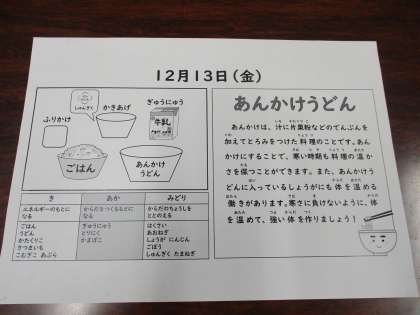 12月13日（金）
しゅんぎく
ふりかけ
かきあげ
ぎゅうにゅう
牛乳
ごはん
あんかけ
うどん
き
あか
みどり
エネルギーのもとに
なる
からだをつくるもとに
なる
からだのちょうしを
ととのえる
ごはん
うどん
かたくりこ
さつまいも
こむぎこ あぶら
ぎゅうにゅう
とりにく
かまぼこ
はくさい
あおねぎ
しょうが にんじん
ごぼう
しゅんぎく たまねぎ
あんかけうどん
あんかけは、汁に片栗粉などのでんぷんを
加えてとろみをつけた料理のことです。あん
かけにすることで、寒い時期も料理の温か
さを保つことができます。また、あんかけう
どんに入っているしょうがにも体を温める
働きがあります。寒さに負けないように、体
を温めて、強い体を作りましょう！